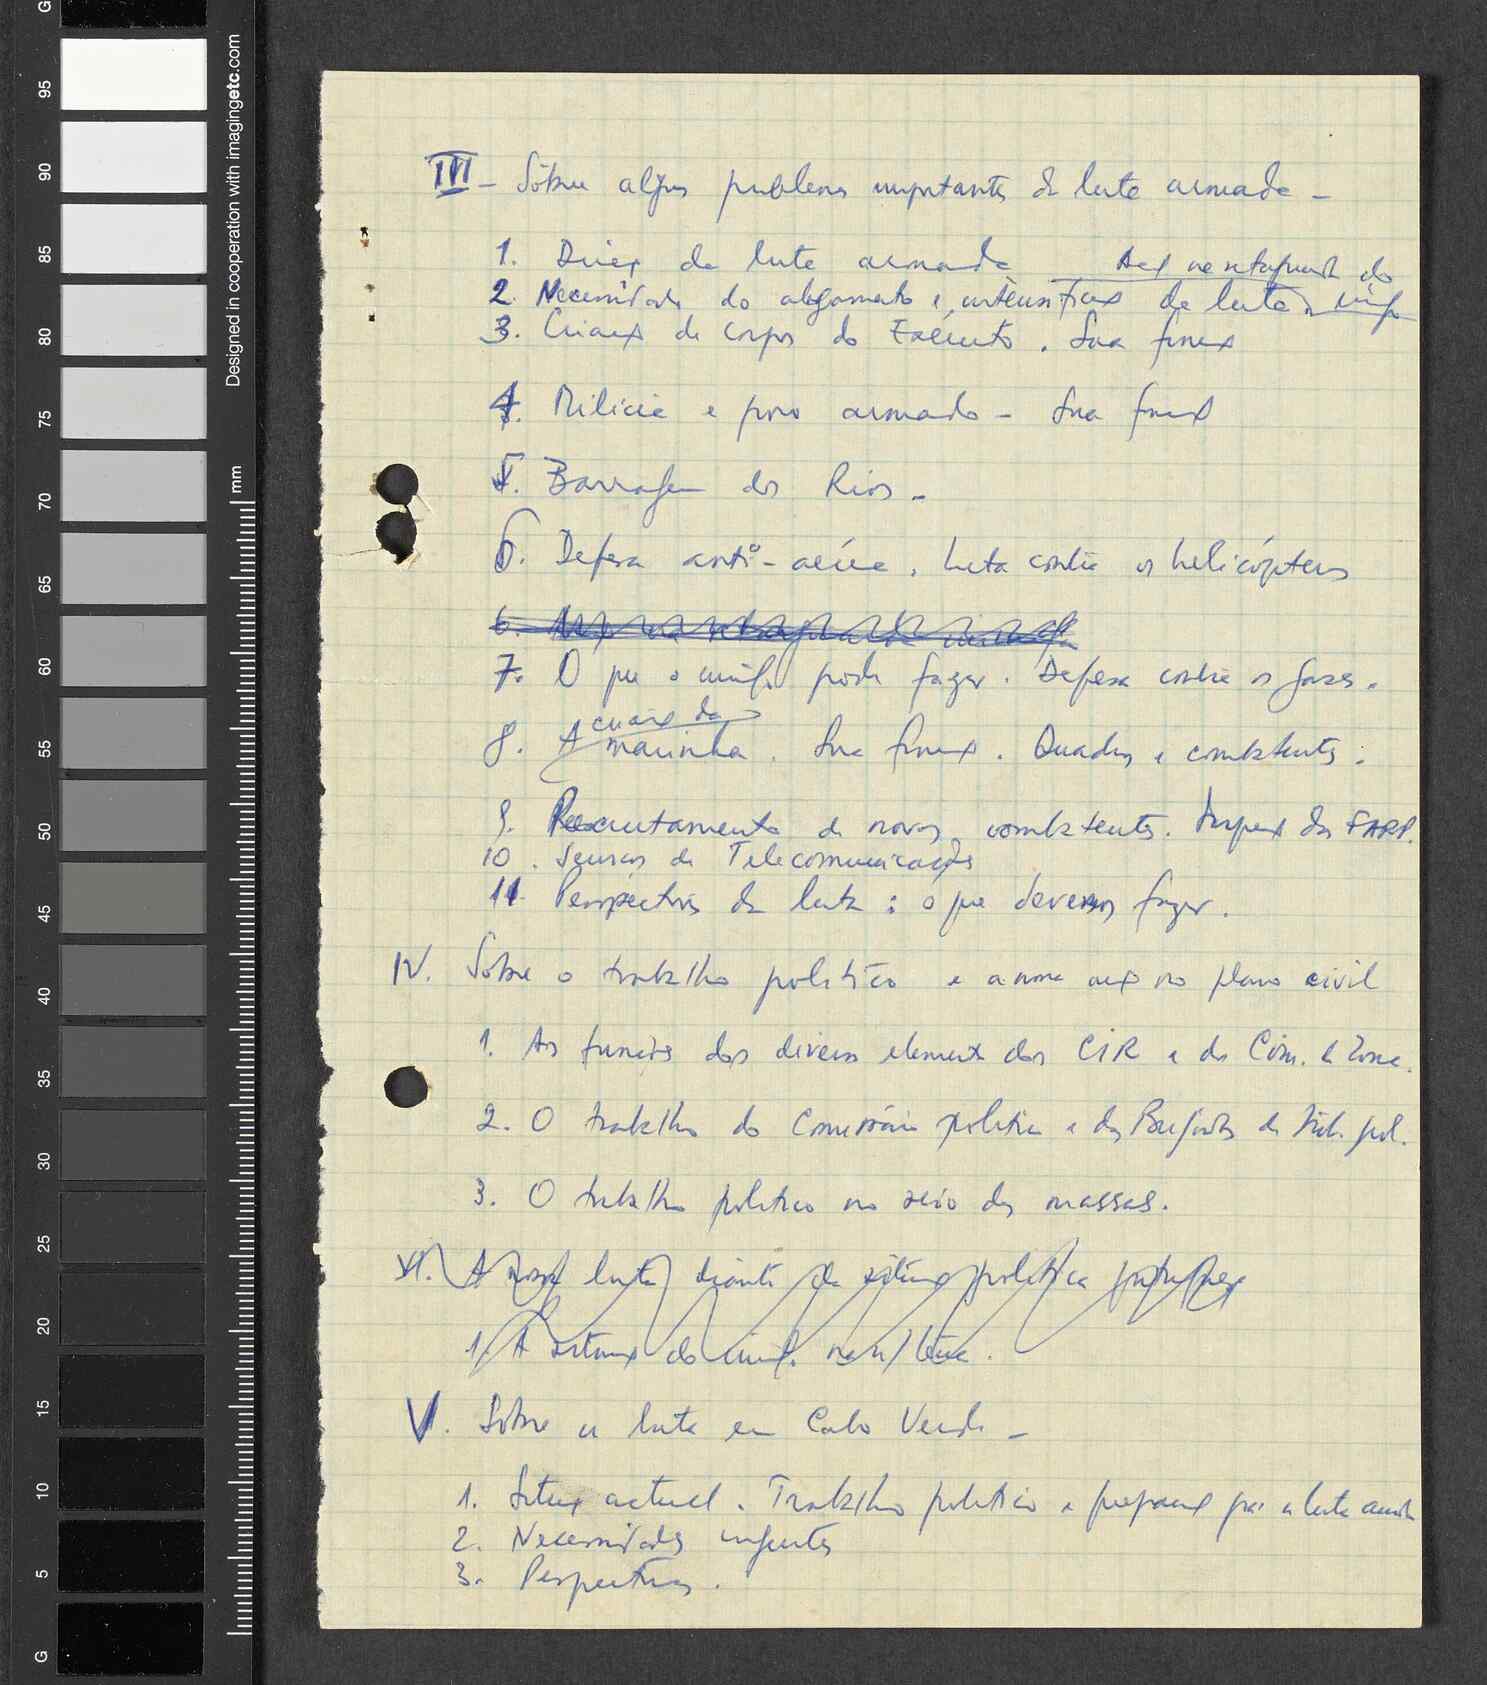 III - Sôbre alguns problemas importantes da luta armada -
1. Direcç da luta armada Acç na retaguarda do
2. Necessidade do alargamento e intensificaç da luta. inimigo
3. Criaç de corpos do Exército. Sua funç
4. Milícia e povo armado - Sua funç
5. Barragem dos Rios -
6. Defesa anti-aérea. Luta contra os helicópteros
6.
7. O que o inimigo pode fazer. Defesa contra os gases.
criaç da
8. A marinha. Sua funç. Quadros e combatentes.
9. Recrutamento de novos combatentes. das FARP.
10. Serviços de Telecomunicações
11. Perspectivas da luta: o que devemos fazer.
IV. Sobre o trabalho político e a nossa acç no plano civil
1. As funções dos diversos elementos dos CIR e do Com. de Zona.
2. O trabalho do Comissário político e das Brigadas de Trab. pol.
3. O trabalho político no seio das massas.
VI. A nossa luta diante da situaç política portuguesa
1. A situaç do inim.
V. Sobre a luta em Cabo Verde -
1. Situaç actual. Trabalho político e preparaç para a luta armada
2. Necessidades urgentes
3. Perspectivas.
Designed in cooperation with imagingetc.com
mm
G
95
90
85
80
75
70
65
60
55
50
45
40
35
30
25
20
15
10
5
G